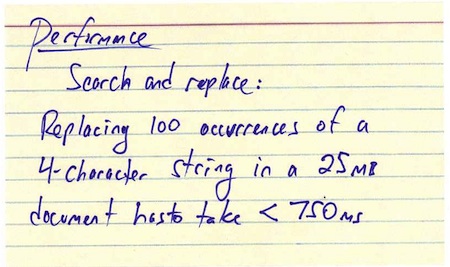 Performance
Search and replace:
Replacing 100 occurrences of a
4-character string in a 25MB
document has to take < 750ms